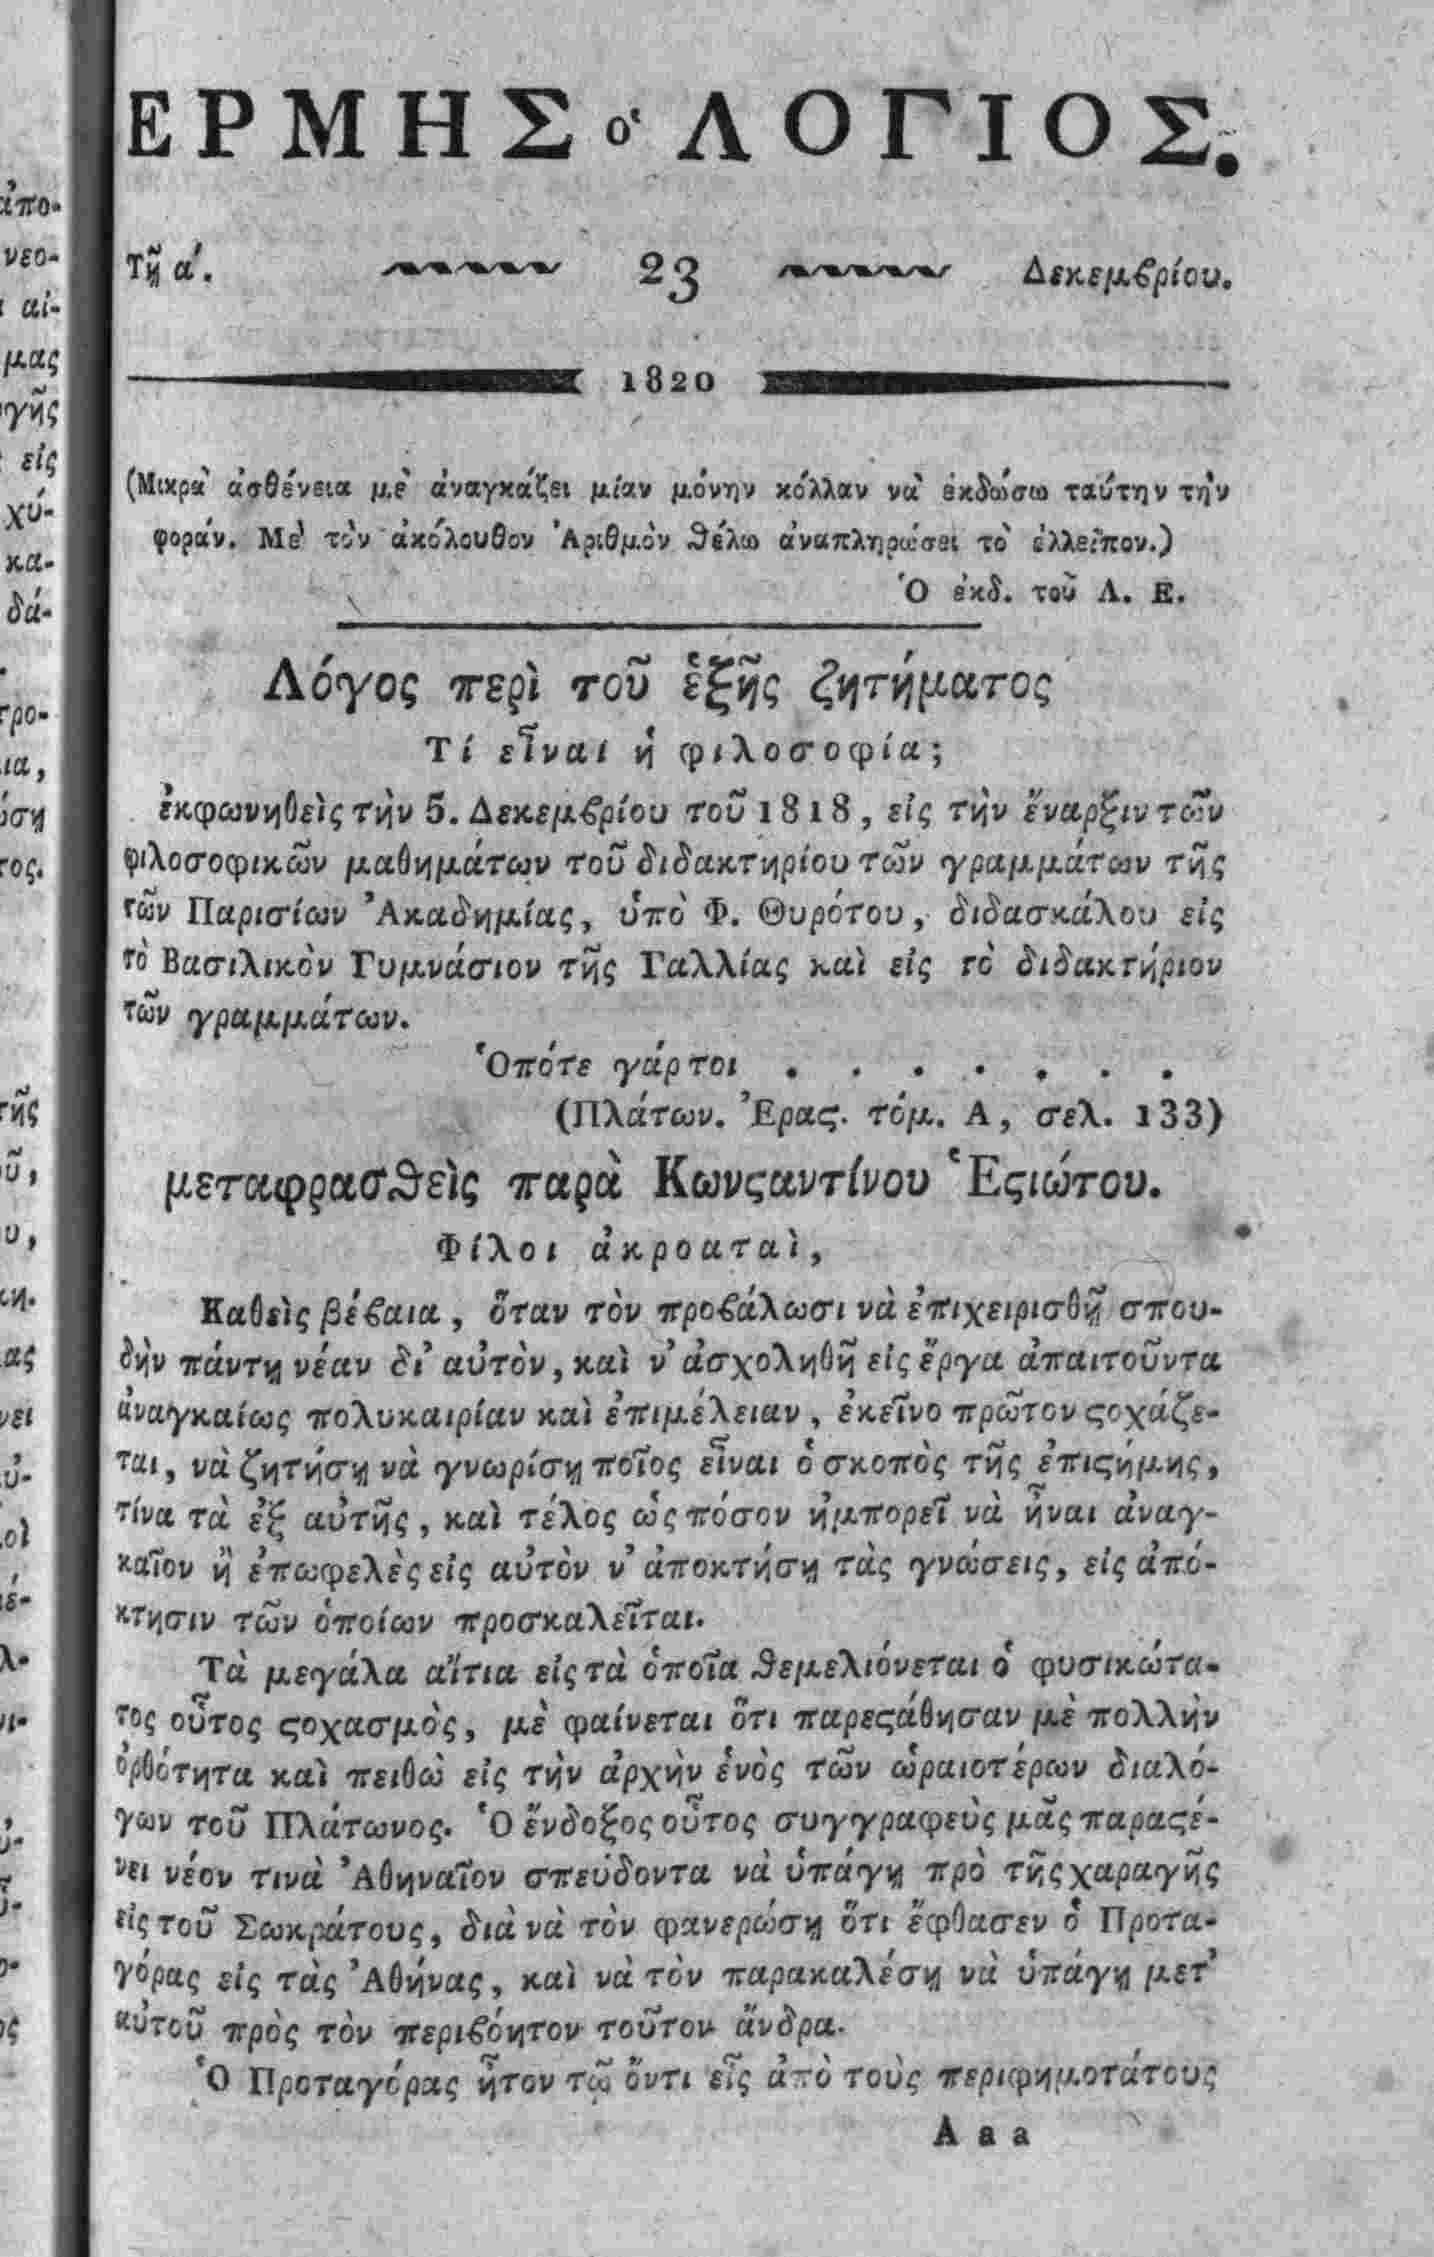 ΕΡΜΗΣ ὁ ΛΟΓΙΟΣ.
Τῇ α΄. 23 Δεκεμβρίου.
1820
(Μικρὰ ἀσθένεια μὲ ἀναγκάζει μίαν μόνην κόλλαν νὰ ἐκδώσω ταύτην τὴν
φοράν. Μὲ τὸν ἀκόλουθον Ἀριθμὸν θέλω ἀναπληρώσει τὸ ἐλλεῖπον.)
Ὁ ἐκδ. τοῦ Λ. Ε.
Λόγος περὶ τοῦ ἑξῆς ζητήματος
Τί εἶναι ἡ φιλοσοφία;
ἐκφωνηθεὶς τὴν 5. Δεκεμβρίου τοῦ 1818, εἰς τὴν ἔναρξιν τῶν
φιλοσοφικῶν μαθημάτων τοῦ διδακτηρίου τῶν γραμμάτων τῆς
τῶν Παρισίων Ἀκαδημίας, ὑπὸ Φ. Θυρότου, διδασκάλου εἰς
τὸ Βασιλικὸν Γυμνάσιον τῆς Γαλλίας καὶ εἰς τὸ διδακτήριον
τῶν γραμμάτων.
Ὁπότε γάρ τοι . . . . . . .
(Πλάτων. Ἐραϛ. τόμ. Α, σελ. 133)
μεταφρασθεὶς παρὰ Κωνϛαντίνου Ἑϛιώτου.
Φίλοι ἀκροαταὶ,
Καθεὶς βέβαια, ὅταν τὸν προβάλωσι νὰ ἐπιχειρισθῇ σπου-
δὴν πάντῃ νέαν δι' αὐτὸν, καὶ ν' ἀσχοληθῇ εἰς ἔργα ἀπαιτοῦντα
ἀναγκαίως πολυκαιρίαν καὶ ἐπιμέλειαν, ἐκεῖνο πρῶτον ϛοχάζε-
ται, νὰ ζητήσῃ νὰ γνωρίσῃ ποῖος εἶναι ὁ σκοπὸς τῆς ἐπιϛήμης,
τίνα τὰ ἐξ αὐτῆς, καὶ τέλος ὡς πόσον ἠμπορεῖ νὰ ἦναι ἀναγ-
καῖον ἢ ἐπωφελὲς εἰς αὐτὸν ν' ἀποκτήσῃ τὰς γνώσεις, εἰς ἀπό-
κτησιν τῶν ὁποίων προσκαλεῖται.
Τὰ μεγάλα αἴτια εἰς τὰ ὁποῖα θεμελιόνεται ὁ φυσικώτα-
τος οὗτος ϛοχασμὸς, μὲ φαίνεται ὅτι παρεϛάθησαν μὲ πολλὴν
ὀρθότητα καὶ πειθὼ εἰς τὴν ἀρχὴν ἑνὸς τῶν ὡραιοτέρων διαλό-
γων τοῦ Πλάτωνος. Ὁ ἔνδοξος οὗτος συγγραφεὺς μᾶς παραϛέ-
νει νέον τινὰ Ἀθηναῖον σπεύδοντα νὰ ὑπάγῃ πρὸ τῆς χαραγῆς
εἰς τοῦ Σωκράτους, διὰ νὰ τὸν φανερώσῃ ὅτι ἔφθασεν ὁ Πρωτα-
γόρας εἰς τὰς Ἀθήνας, καὶ νὰ τὸν παρακαλέσῃ νὰ ὑπάγῃ μετ'
αὐτοῦ πρὸς τὸν περιβόητον τοῦτον ἄνδρα.
Ὁ Προταγόρας ἦτον τῷ ὄντι εἷς ἀπὸ τοὺς περιφημοτάτους
Α a a